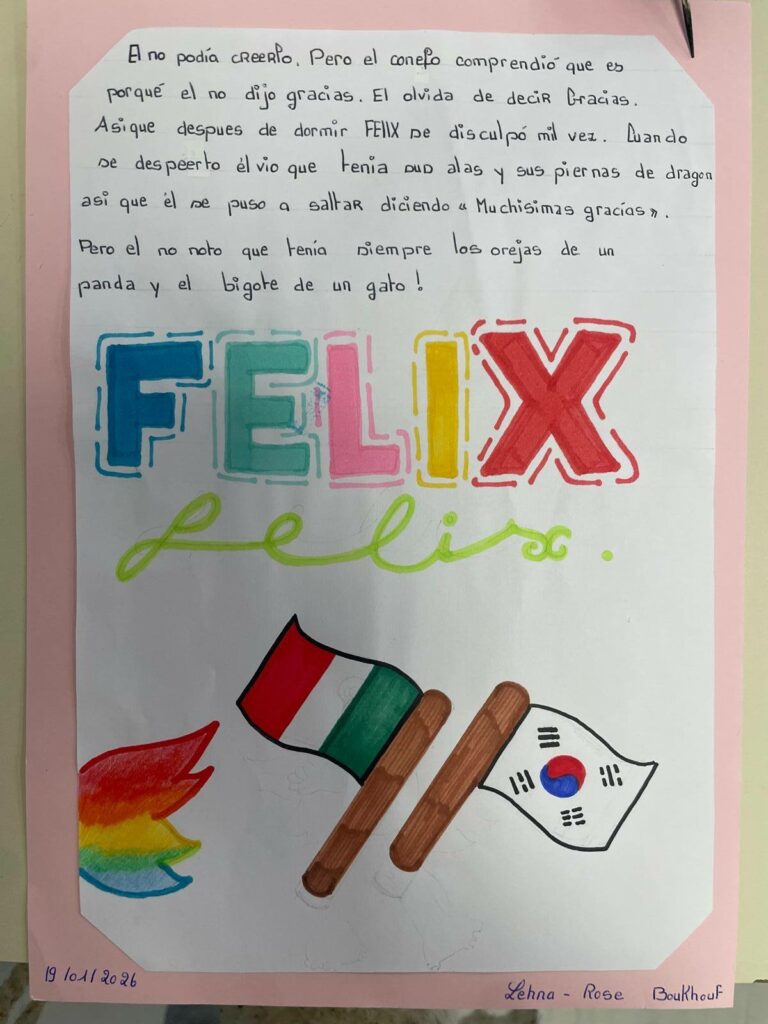 El no podía creerlo. Pero el conejo comprendió que es
porqué el no dijo gracias. El olvida de decir Gracias.
Asique despues de dormir FELIX se disculpó mil vez. Cuando
se despeerto él vio que tenia sus alas y sus piernas de dragon
asi que él se puso a saltar diciendo « Muchisimas gracías ».
Pero el no noto que tenía siempre los orejas de un
panda y el bigote de un gato !
FELIX
Felix.
19/01/2026
Lehna - Rose Boukhouf